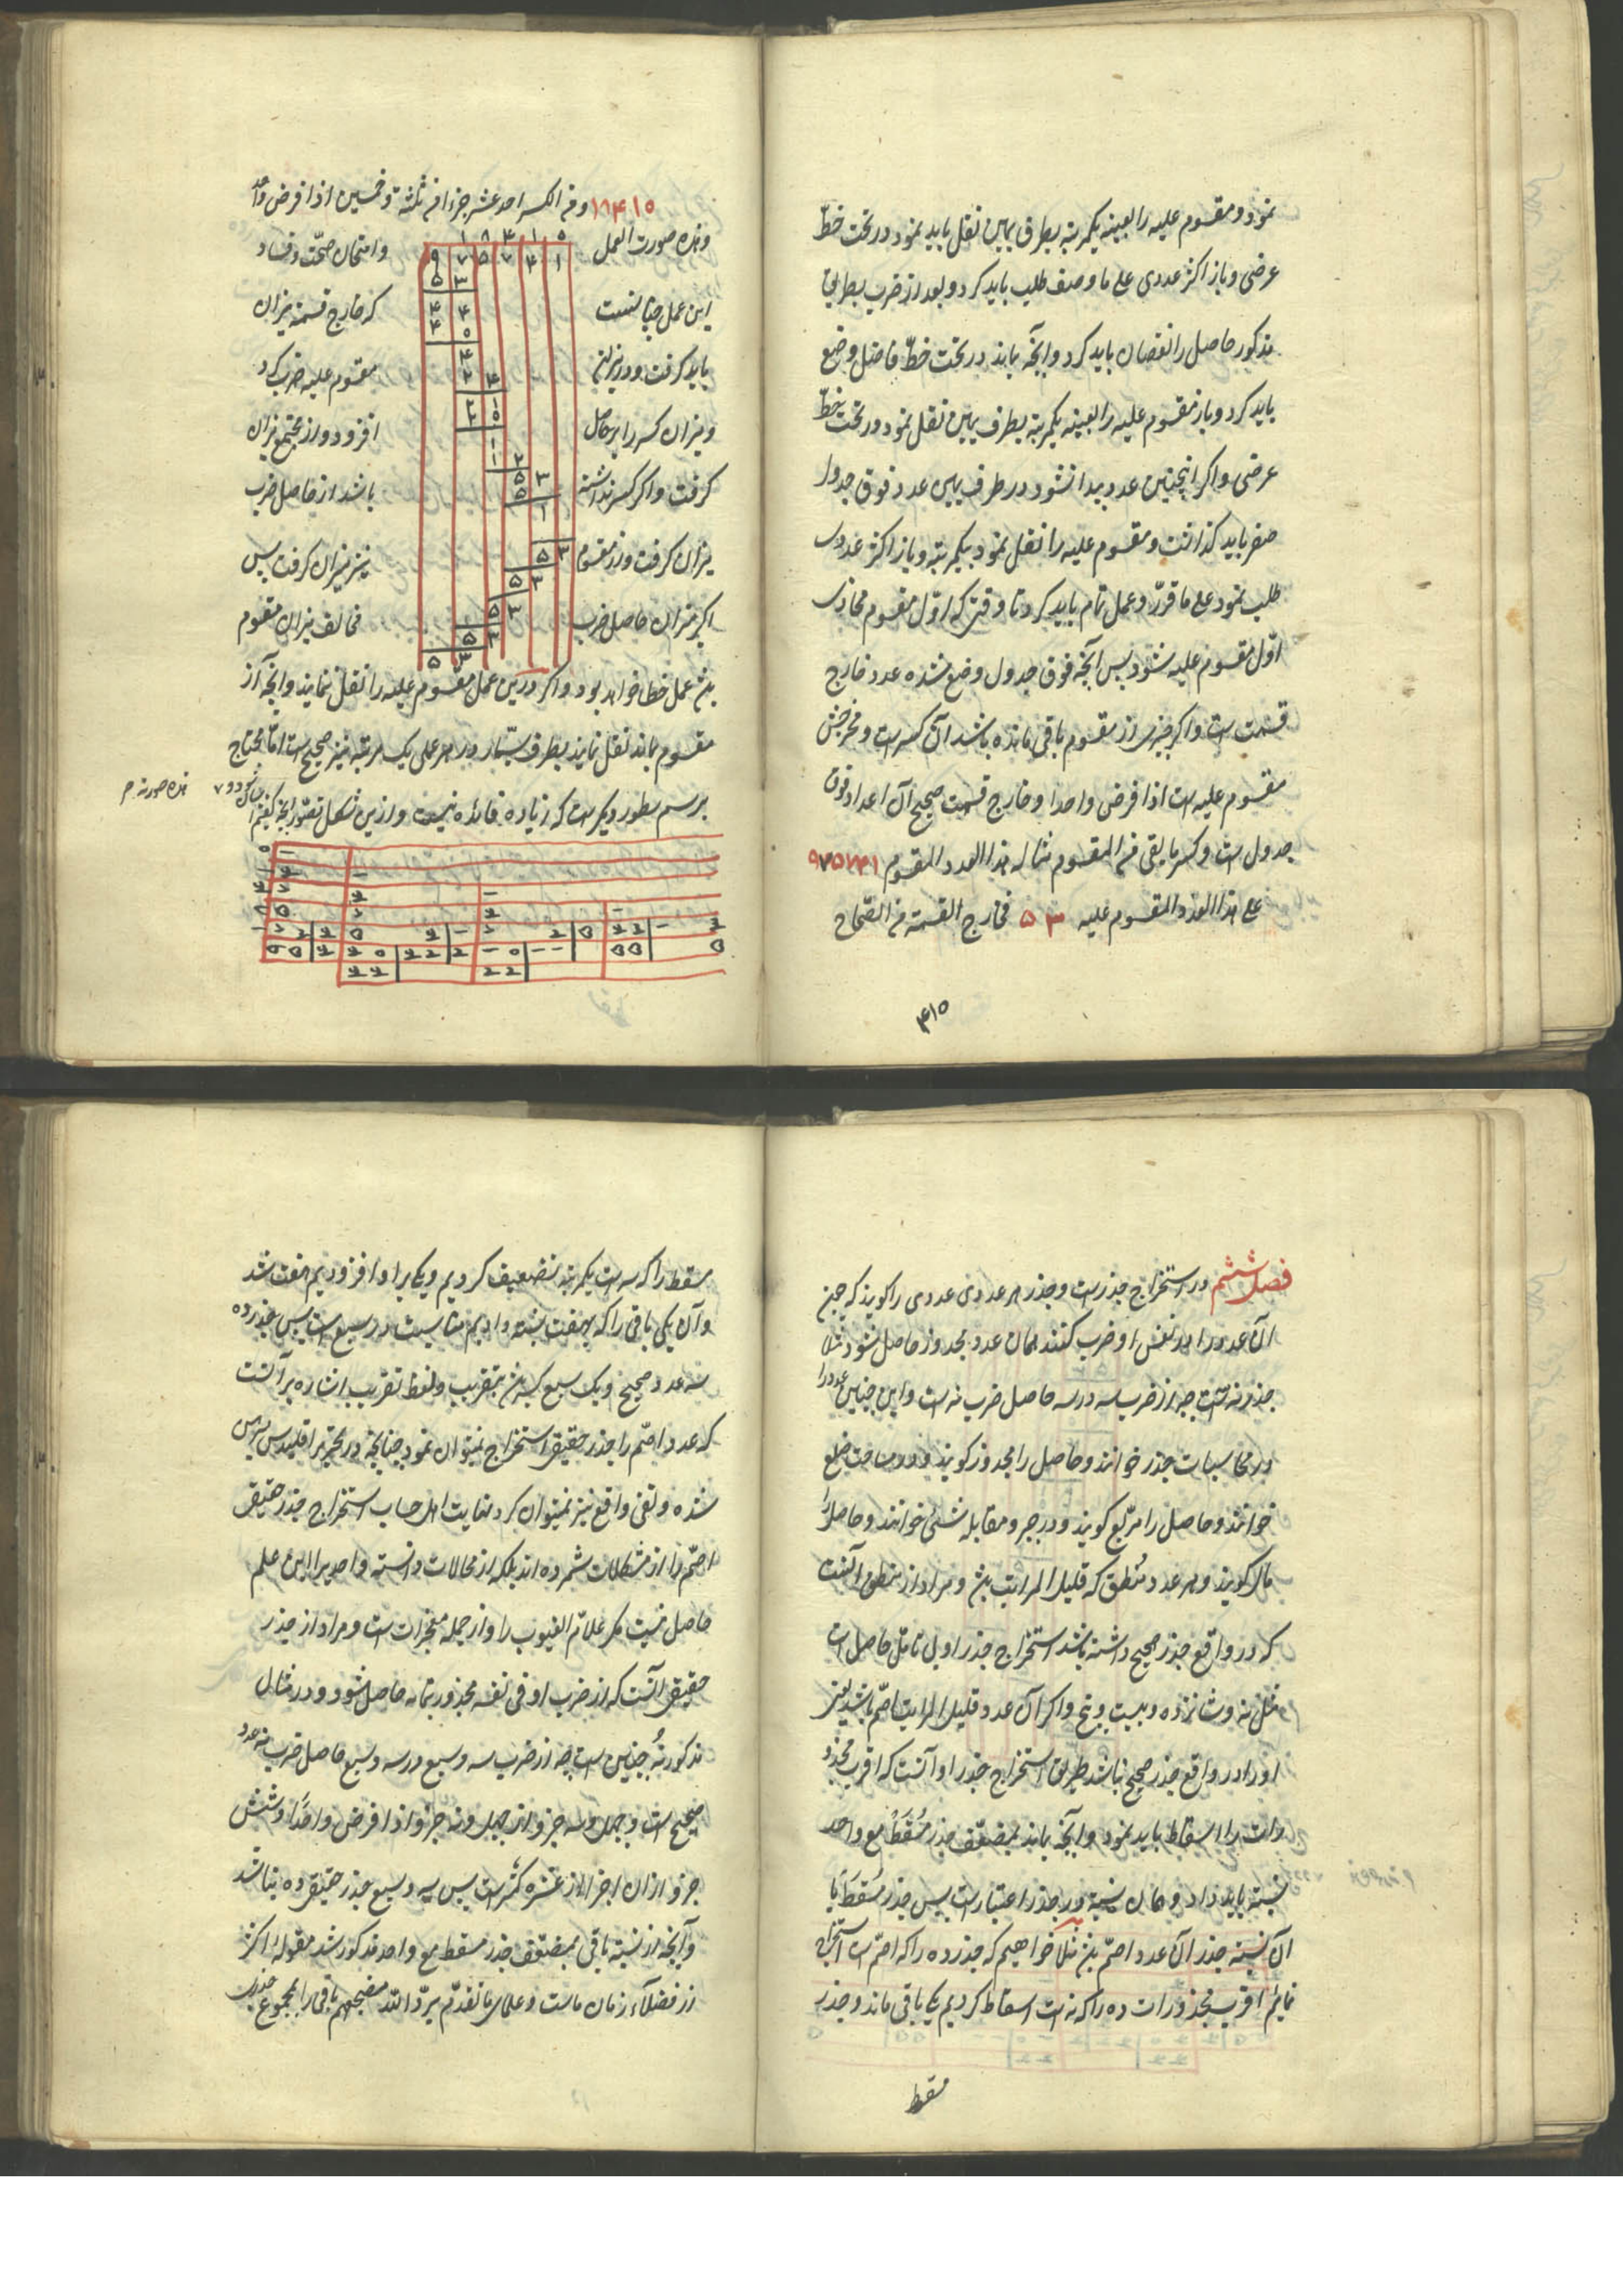 نمود و مقسوم علیه را بعینه یکمرتبه بطرف یمین نقل باید نمود و در تحت خطّ
عرضی و باز اکثر عددی علی ما وصف طلب باید کرد و بعد از ضرب بطریق
مذکور حاصل را نقصان باید کرد و آنچه بماند در تحت خطّ فاصل وضع
باید کرد و باز مقسوم علیه را بعینه یکمرتبه بطرف یمین نقل نمود و در تحت خطّ
عرضی و اکر اینچنین عدد پیدا نشود در طرف یمین عدد فوق جدول
صفر باید کذاشت و مقسوم علیه را نقل نمود بیکمرتبه و باز اکثر عددی
طلب نمود علی ما قرّر و عمل تمام باید کرد تا وقتی که اوّل مقسوم محاذی
اوّل مقسوم علیه شود پس آنچه فوق جدول وضع شده عدد خارج
قسمت است و اکر چیزی از مقسوم باقی مانده باشد آن کسر است و مخرجش
مقسوم علیه است اذا فرض واحدا و خارج قسمت صحیح آن اعداد فوق
جدول است و کسر ما یبقی من المقسوم مثاله هذا العدد المقسوم ۹۷۵۷۴۱
علی هذا العدد المقسوم علیه ۵۳ فخارج القسمة من الصّحاح
۱۸۴۱۵
۱۸۴۱۵ و من الکسر احد عشر جزءا من ثلثة و خمسین اذا فرض واحد
و هذه صورت العمل ۱ ۸ ۴ ۱ ۵ و امتحان صحّت و فساد
۹ ۷ ۵ ۷ ۴ ۱
این عمل چنانست که خارج قسمة میزان
باید کرفت و در میزان مقسوم علیه ضرب کرد
و میزان کسر را بر حاصل افزود و از مجتمع میزان
کرفت و اکر کسر نداشته باشد از حاصل ضرب
میزان کرفت و از مقسوم نیز میزان کرفت پس
اکر میزان حاصل ضرب مخالف میزان مقسوم
بود عمل خطا خواهد بود و اکر درین عمل مقسوم علیه را نقل ننمایند و آنچه از
مقسوم بماند نقل نمایند بطرف یسار در هر عملی یک مرتبه نیز صحیح است امّا محتاج
برسم سطور دیکر است که زیاده فائده نیست و ازین شکل تصوّر آنچه کفتیم
هذه صورته
فصل ششم در استخراج جذر است و جذر هر عددی عددی را کویند که چون
آن عدد را در نفس او ضرب کنند همان عدد مجذور حاصل شود مثلا
جذر نه سه است چه از ضرب سه در سه حاصل ضرب نه است و این چنین عدد را
در محاسبات جذر خوانند و حاصل را مجذور کویند و در مساحت ضلع
خوانند و حاصل را مربّع کویند و در جبر و مقابله شئی خوانند و حاصل را
مال کویند و هر عدد مُنطق که قلیل المراتب بود و مراد از منطق آنست
که در واقع جذر صحیح داشته باشد استخراج جذر او بی تامّل حاصل است
مثل نه و شانزده و بیست و پنج و اکر آن عدد قلیل المراتب اصّم باشد یعنی
او را در واقع جذر صحیح نباشد طریق استخراج جذر او آنست که اقرب مجذو
رات را اسقاط باید نمود و آنچه بماند بمضعّف جذر مُسقَط مع واحد
نسبة باید داد و همان نسبة در جذر اعتبار است پس جذر مُسقَط با
آن نسبة جذر آن عدد اصّم بود مثلا خواهیم که جذر ده را که اصّم است استخراج
نمائیم اقرب مجذورات ده را که نه است اسقاط کردیم یکی باقی ماند و جذر
مسقط
مسقط را که سه است یکمرتبه تضعیف کردیم و یکی بر او افزودیم هفت شد
و آن یکی باقی را که بهفت نسبة دادیم مناسبت در سبع است پس جذر ده
سه عدد صحیح و یک سبع کسر بود بتقریب و لفظ تقریب اشاره بر آنست
که عدد اصّم را جذر حقیقی استخراج نمیتوان نمود چنانچه در تحریر اقلیدس مبرهن
شده و نفی واقع نیز نمیتوان کرد نهایت اهل حساب استخراج جذر حقیقی
اصّم را از مشکلات شمرده اند بلکه از محالات دانسته و احدیرا این علم
حاصل نیست مکر علاّم الغیوب را و از جمله معجزات است و مراد از جذر
حقیقی آنست که از ضرب او فی نفسه مجذور بتمامه حاصل شود و در مثال
مذکور نه چنین است چه از ضرب سه و سبع در سه و سبع حاصل ضرب نه عدد
صحیح است و چهل و سه جزو از چهل و نه جزو اذا فرض واحدًا و شش
جزو از آن اجزا از عشره کمتر است پس سه و سبع جذر حقیقی ده نباشد
و آنچه از نسبة باقی بمضعّف جذر مسقط مع واحد مذکور شد مقوله اکثر
از فضلاء زمان ماست و علمای ما تقدّم برّد الله مضجعهم باقی را بمجموع جذرین